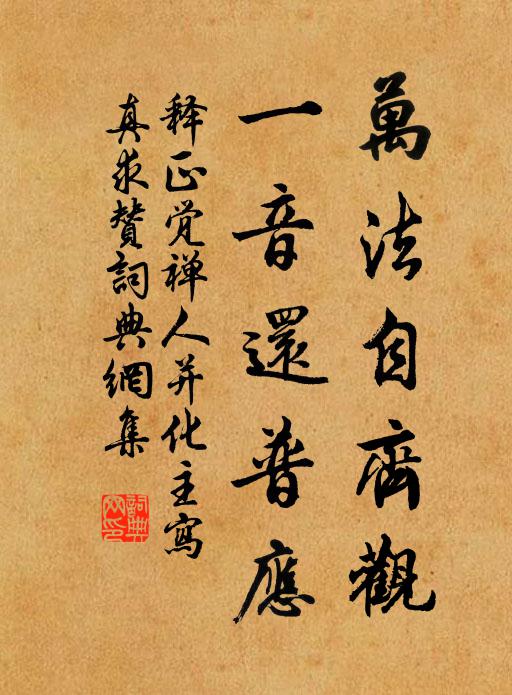 萬法自齊觀
一音還普應
释正觉禅人并化主寫
真求贊詞典網集
詞典網印